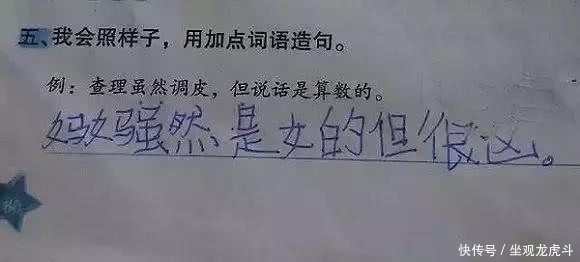 五、我会照样子，用加点词语造句。
例：查理虽然调皮，但说话是算数的。
妈妈虽然是女的但很凶。
快传号/坐观龙虎斗